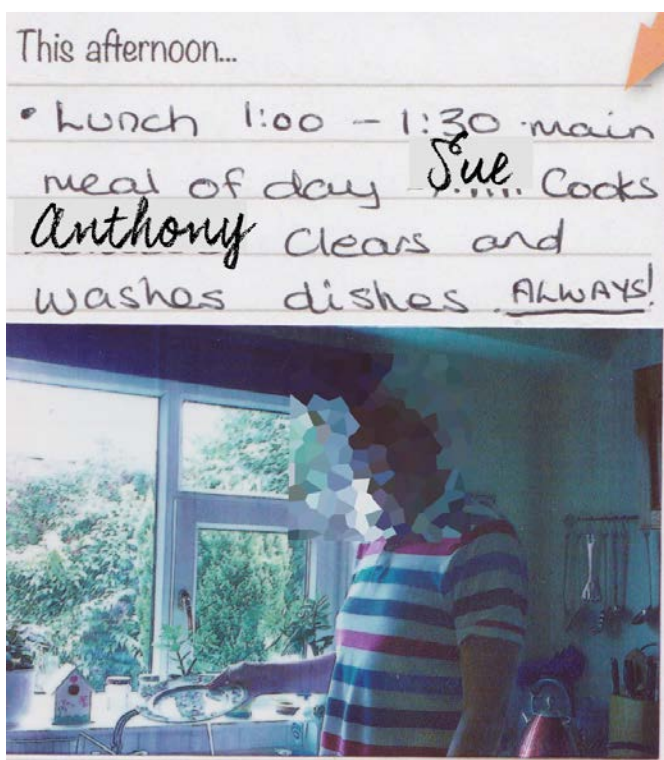 This afternoon...
• Lunch 1:00 – 1:30 main
meal of day Sue Cooks
Anthony Clears and
washes dishes ALWAYS!